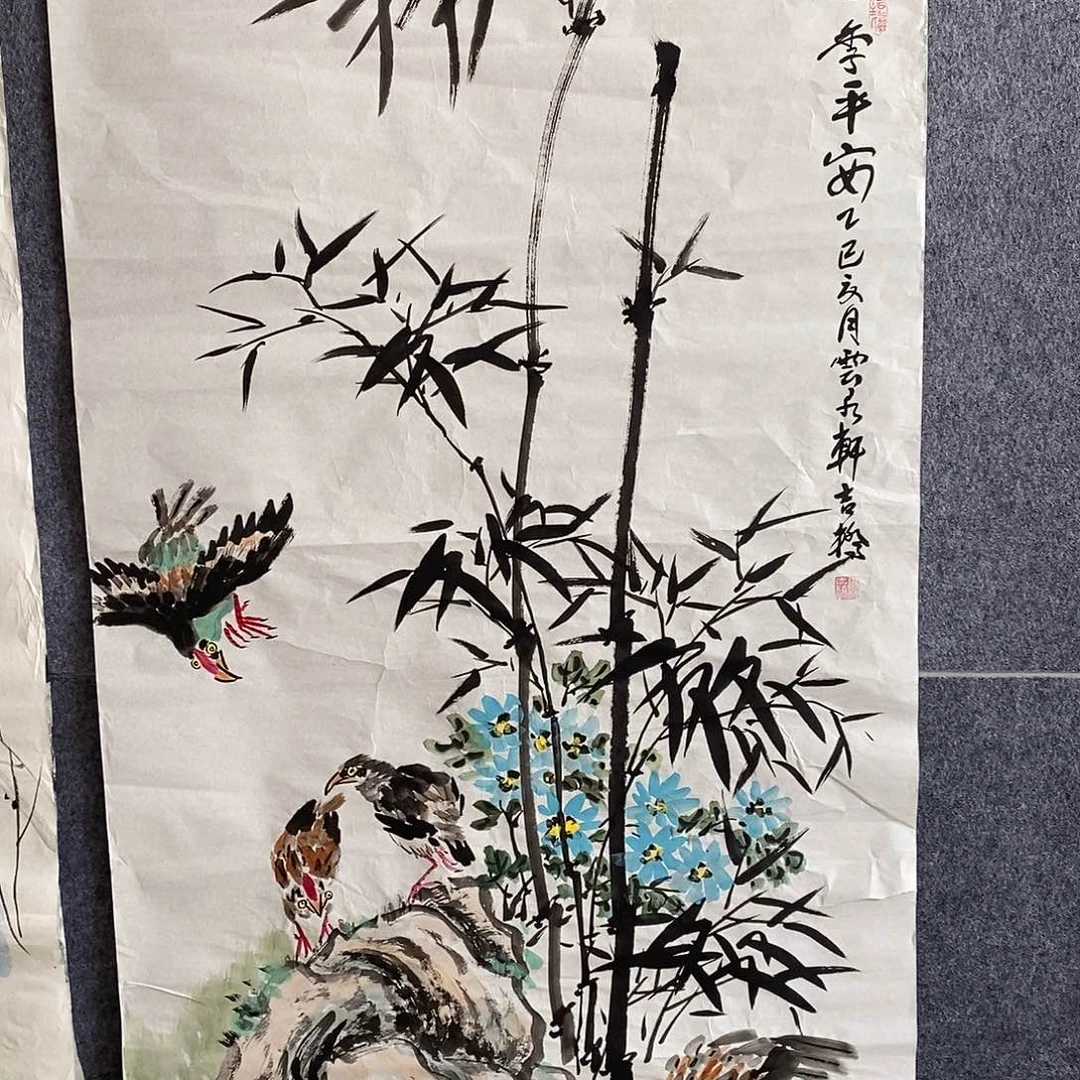 季平安乙巳夏月雲水軒吉